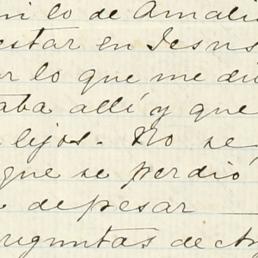 ni lo de Amali
estar en Jesus
or lo que me di
taba allí y que
lejos. No se
que se perdió
depesar
reguntas de